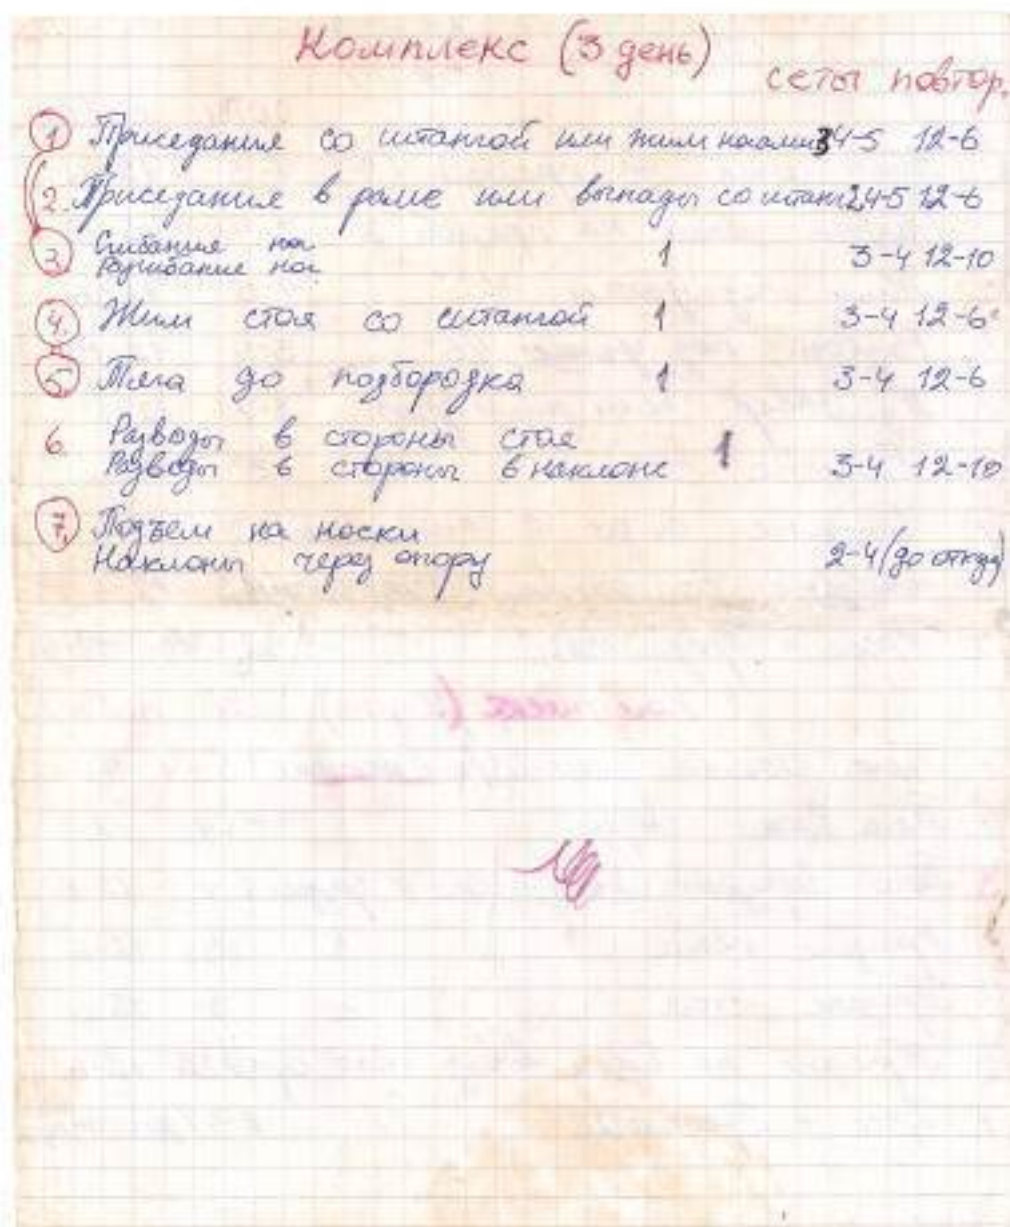 Комплекс (3 день)
сеты повтор.
1 Приседания со штангой или жим ногами 3 4-5 12-6
2. Приседание в раме или выпады со штан 2 4-5 12-6
3. Сгибание ног
Разгибание ног 1 3-4 12-10
4. Жим стоя со штангой 1 3-4 12-6
5. Тяга до подбородка 1 3-4 12-6
6. Разводы в стороны стоя
Разводы в стороны в наклоне 1 3-4 12-10
7. Подъем на носки
Наклоны через опору 2-4 (до отказа)